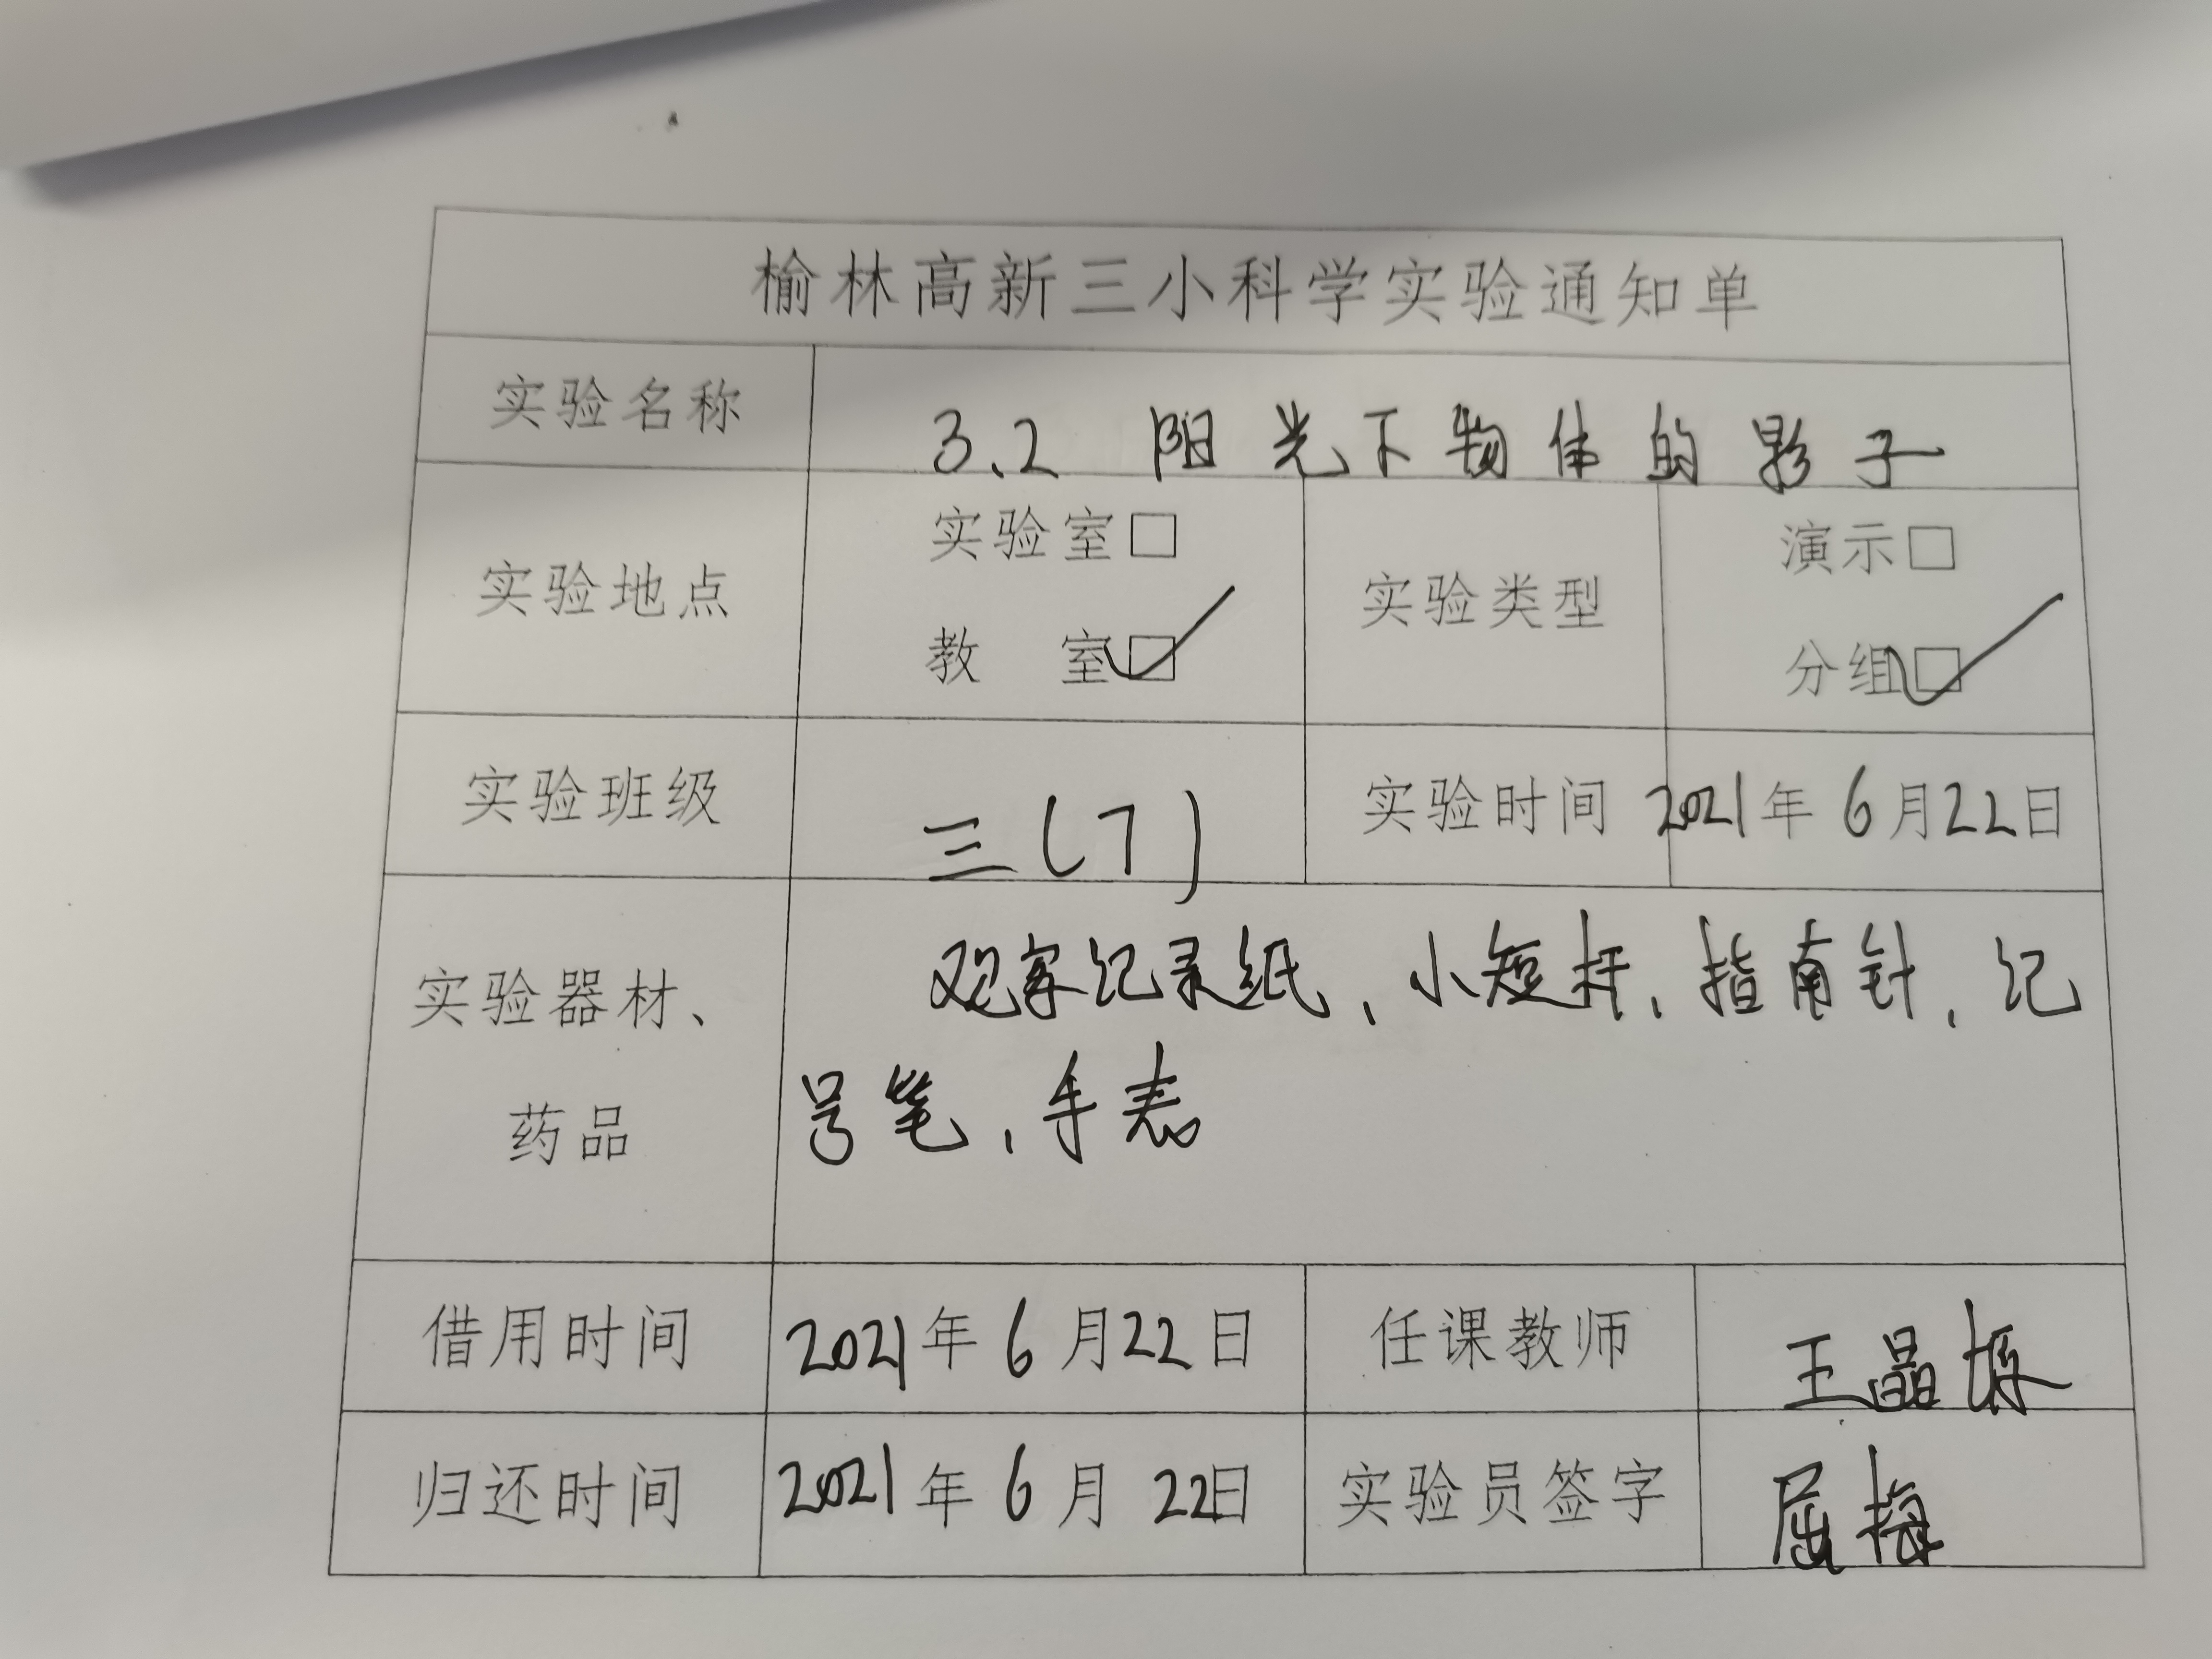 榆林高新三小科学实验通知单
实验名称 3.2 阳光下物体的影子
实验地点 实验室□ 教 室☑ 实验类型 演示□ 分组☑
实验班级 三(7) 实验时间 2021年6月22日
实验器材、药品 观察记录纸、小短杆、指南针、记
号笔、手表
借用时间 2021年6月22日 任课教师 王晶
归还时间 2021年6月22日 实验员签字 屈梅